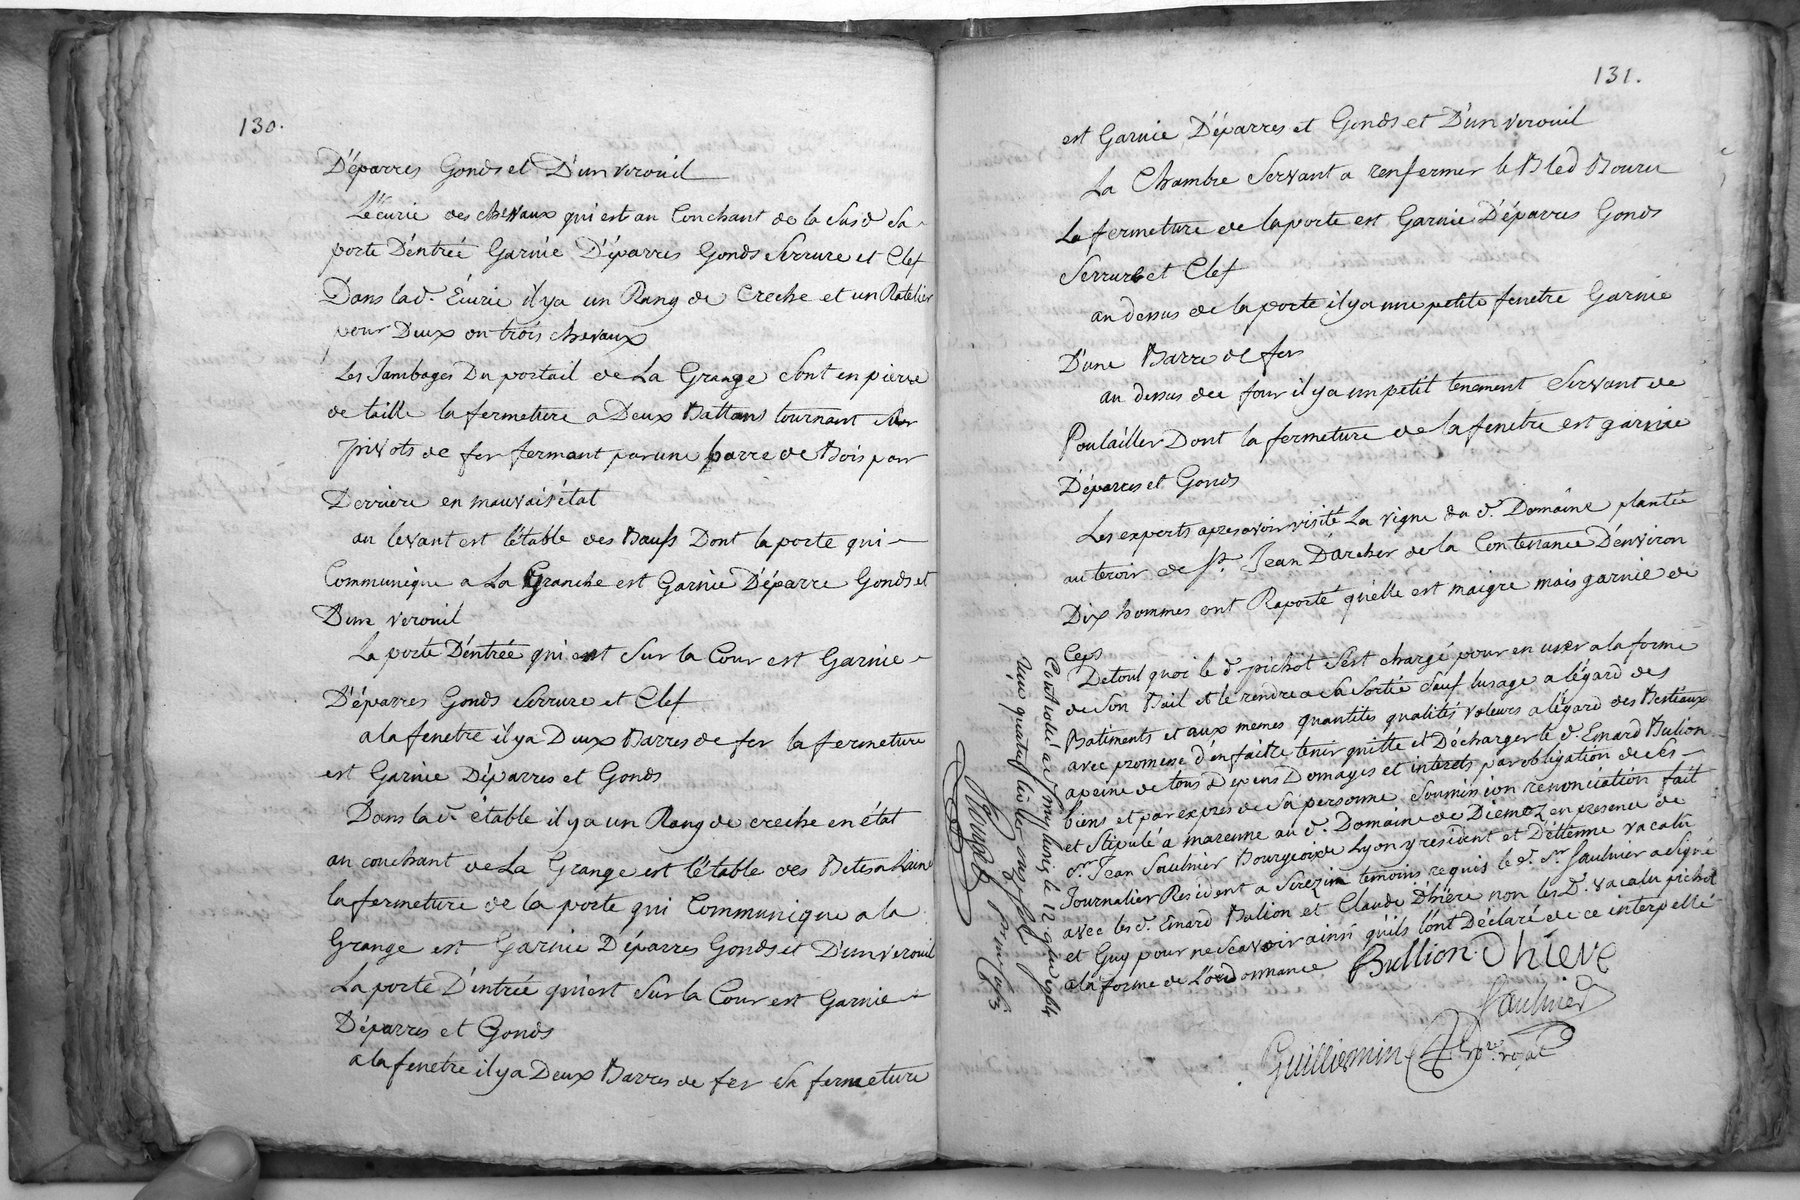 130.
D'éparres Gonds et D'un verouil
L'écurie des chevaux qui est au Couchant de la Susd Sa
porte D'entrée Garnie D'éparres Gonds Serrure et Clef
Dans lad. Ecurie il y a un Rang de Creche et un Ratelier
pour Deux ou trois chevaux
Les Jambages Du portail de La Grange Sont en pierre
de taille la fermeture a Deux Battans tournant Sur
pivots de fer fermant par une barre de Bois par
Derriere en mauvais état
au levant est l'étable des Bœufs Dont la porte qui
Communique a La Granche est Garnie D'éparre Gonds et
D'un verouil
La porte D'entrée qui est Sur la Cour est Garnie
D'éparres Gonds Serrure et Clef
a la fenetre il y a Deux Barres de fer la fermeture
est Garnie D'éparres et Gonds
Dans lad. étable il y a un Rang de creche en état
au couchant de La Grange est l'étable des Betes a Laine
la fermeture de la porte qui Communique a la
Grange est Garnie D'éparres Gonds et D'un verouil
La porte D'entrée qui est Sur la Cour est Garnie
D'éparres et Gonds
a la fenetre il y a Deux Barres de fer Sa fermeture
131.
est Garnie D'éparres et Gonds et D'un verouil
La Chambre Servant a renfermer le Bled Bouru
La fermetture de la porte est Garnie D'éparres Gonds
Serrure et Clef
au dessus de la porte il y a une petite fenetre Garnie
D'une Barre de fer
au dessus dee four il y a un petit tenement Servant de
Poulailler Dont la fermeture de la fenetre est garnie
D'éparres et Gonds
Les experts apres avoir visité La vigne du d. Domaine plantée
au teroir de St. Jean D'archer de la Contenance D'environ
Dix hommes ont Raporté qu'elle est maigre mais garnie de
Ceps
De tout quoi le d. pichot s'est chargé pour en user a la forme
de Son Bail et le rendre a Sa Sortie Sauf lusage a légard des
Batiments et aux memes quantités qualités valeurs a légard des Bestiaux
avec promesse d'en faire tenir quitte et Décharger le d. Emard Bulion
a peine de tous Depens Domages et interets par obligation de Ses
biens et par expres de Sa personne Soumission renonciation fait
et Stipulé a marenne au d. Domaine de Diemoz en presence de
Sr. Jean Saulnier Bourgeois de Lyon y resident et D'étienne vacalu
Journalier Resident a Serezin temoins requis le d. Sr. Saulnier a Signé
avec les d. Emard Bulion et Claude D'hiere non les d. vacalu pichot
et Guy pour ne Scavoir ainsi qu'ils l'ont Déclaré de ce interpellé
a la forme de L'ordonnance Bullion Dhieve
Saulnier
Guilliermin nre. royal
Controlé a St Simphorien le 12